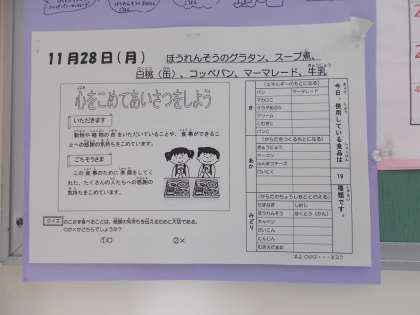 11月28日(月)
ほうれんそうのグラタン、スープ煮、
白桃(缶)、コッペパン、マーマレード、牛乳
心をこめてあいさつをしよう
いただきます
動物や植物の命をいただいていることや、食事ができるこ
とへの感謝の気持ちをこめています。
ごちそうさま
この食事のために準備をしてく
れた、たくさんの人たちへの感謝
の気持ちをこめています。
クイズ
のこさず食べることは、感謝の気持ちを伝えるために大切である。
○か×かどちらでしょうか?
①○ ②×
今日、使用している食品は
19
種類です。
き
(エネルギーのもとになる)
パン
マーマレード
マカロニ
クリーム
こむぎこ
パンこ
あか
(からだをつくるもとになる)
ぎゅうにゅう
ベーコン
みどり
(からだのちょうしをととのえる)
たまねぎ
しめじ
ほうれんそう
はくとう(かん)
キャベツ
だいこん
にんじん